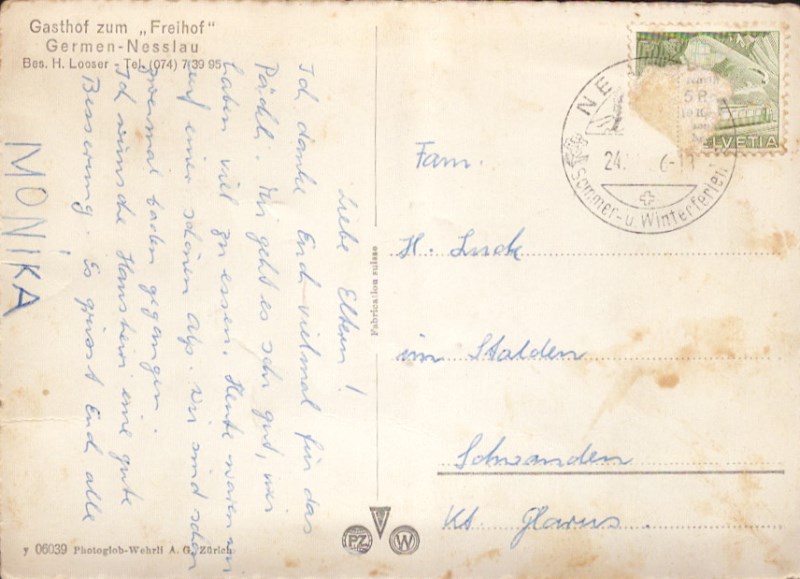 Gasthof zum „Freihof"
Germen-Nesslau
Bes. H. Looser - Tel. (074) 7 39 95
Liebe Eltern!
Ich danke Euch vielmal für das
Päckli. Mir geht es sehr gut, wir
haben viel zu essen. Heute waren wir
auf einer schönen Alp. Wir sind schon
zweimal baden gegangen.
Ich wünsche Hansheiri eine gute
Besserung. Es grüsst Euch alle
MONIKA
Fabrication suisse
NE
24.
Sommer- u. Winterferien
HELVETIA
Fam.
H. Luck
im Stalden
Schwanden
Kt. Glarus.
PZ W
y 06039 Photoglob-Wehrli A. G. Zürich